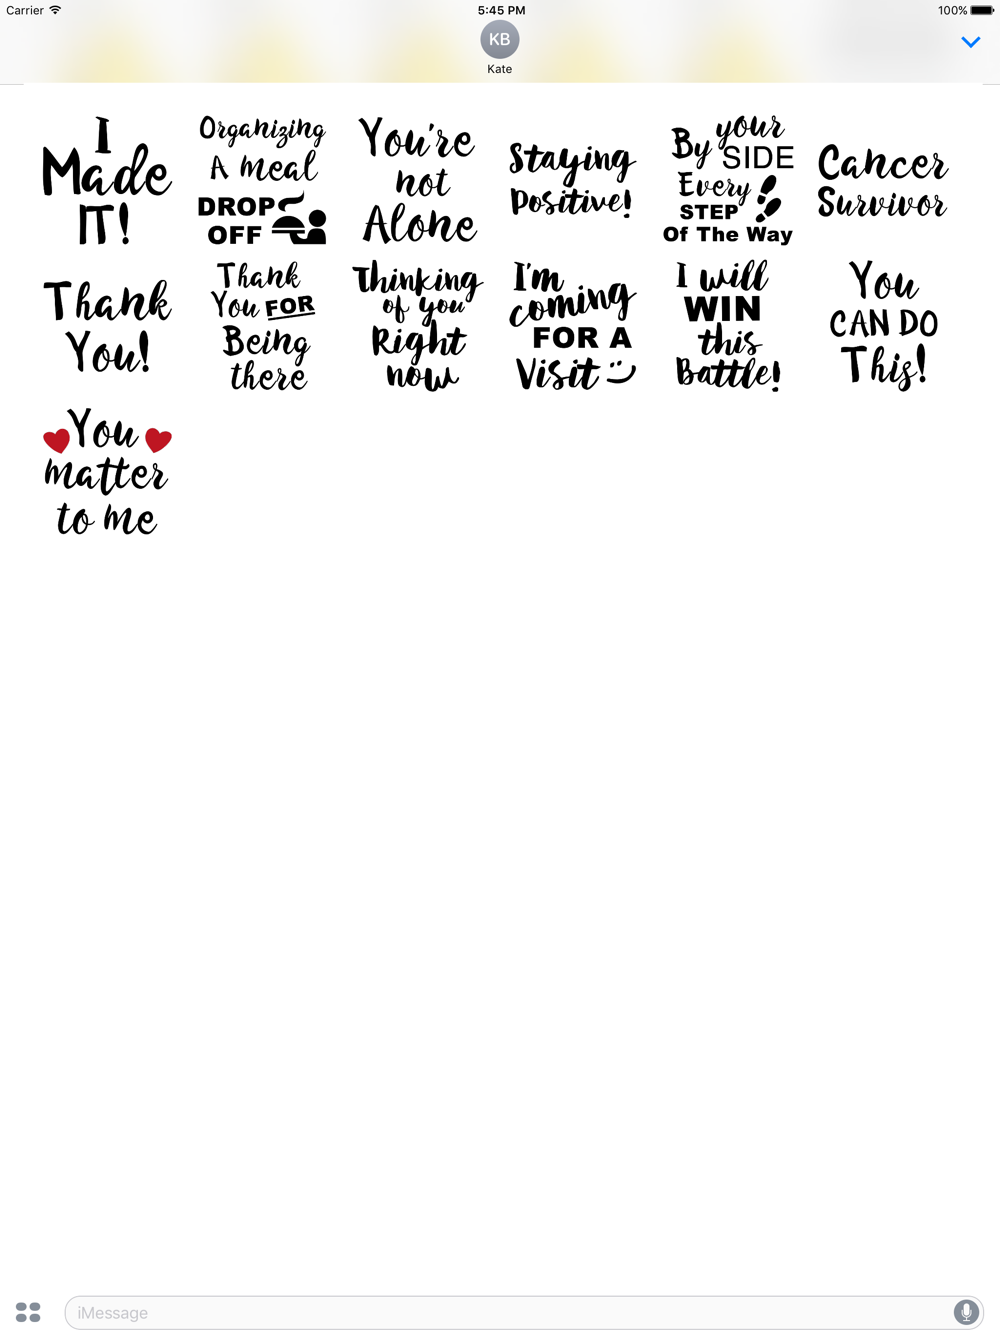 Carrier
5:45 PM
100%
KB
Kate
I
Made
IT!
Organizing
A meal
DROP
OFF
You're
not
Alone
Staying
Positive!
By your
SIDE
Every
STEP
Of The Way
Cancer
Survivor
Thank
You!
Thank
You FOR
Being
there
Thinking
of you
Right
now
I'm
coming
FOR A
Visit
I will
WIN
this
Battle!
You
CAN DO
This!
You
matter
to me
iMessage